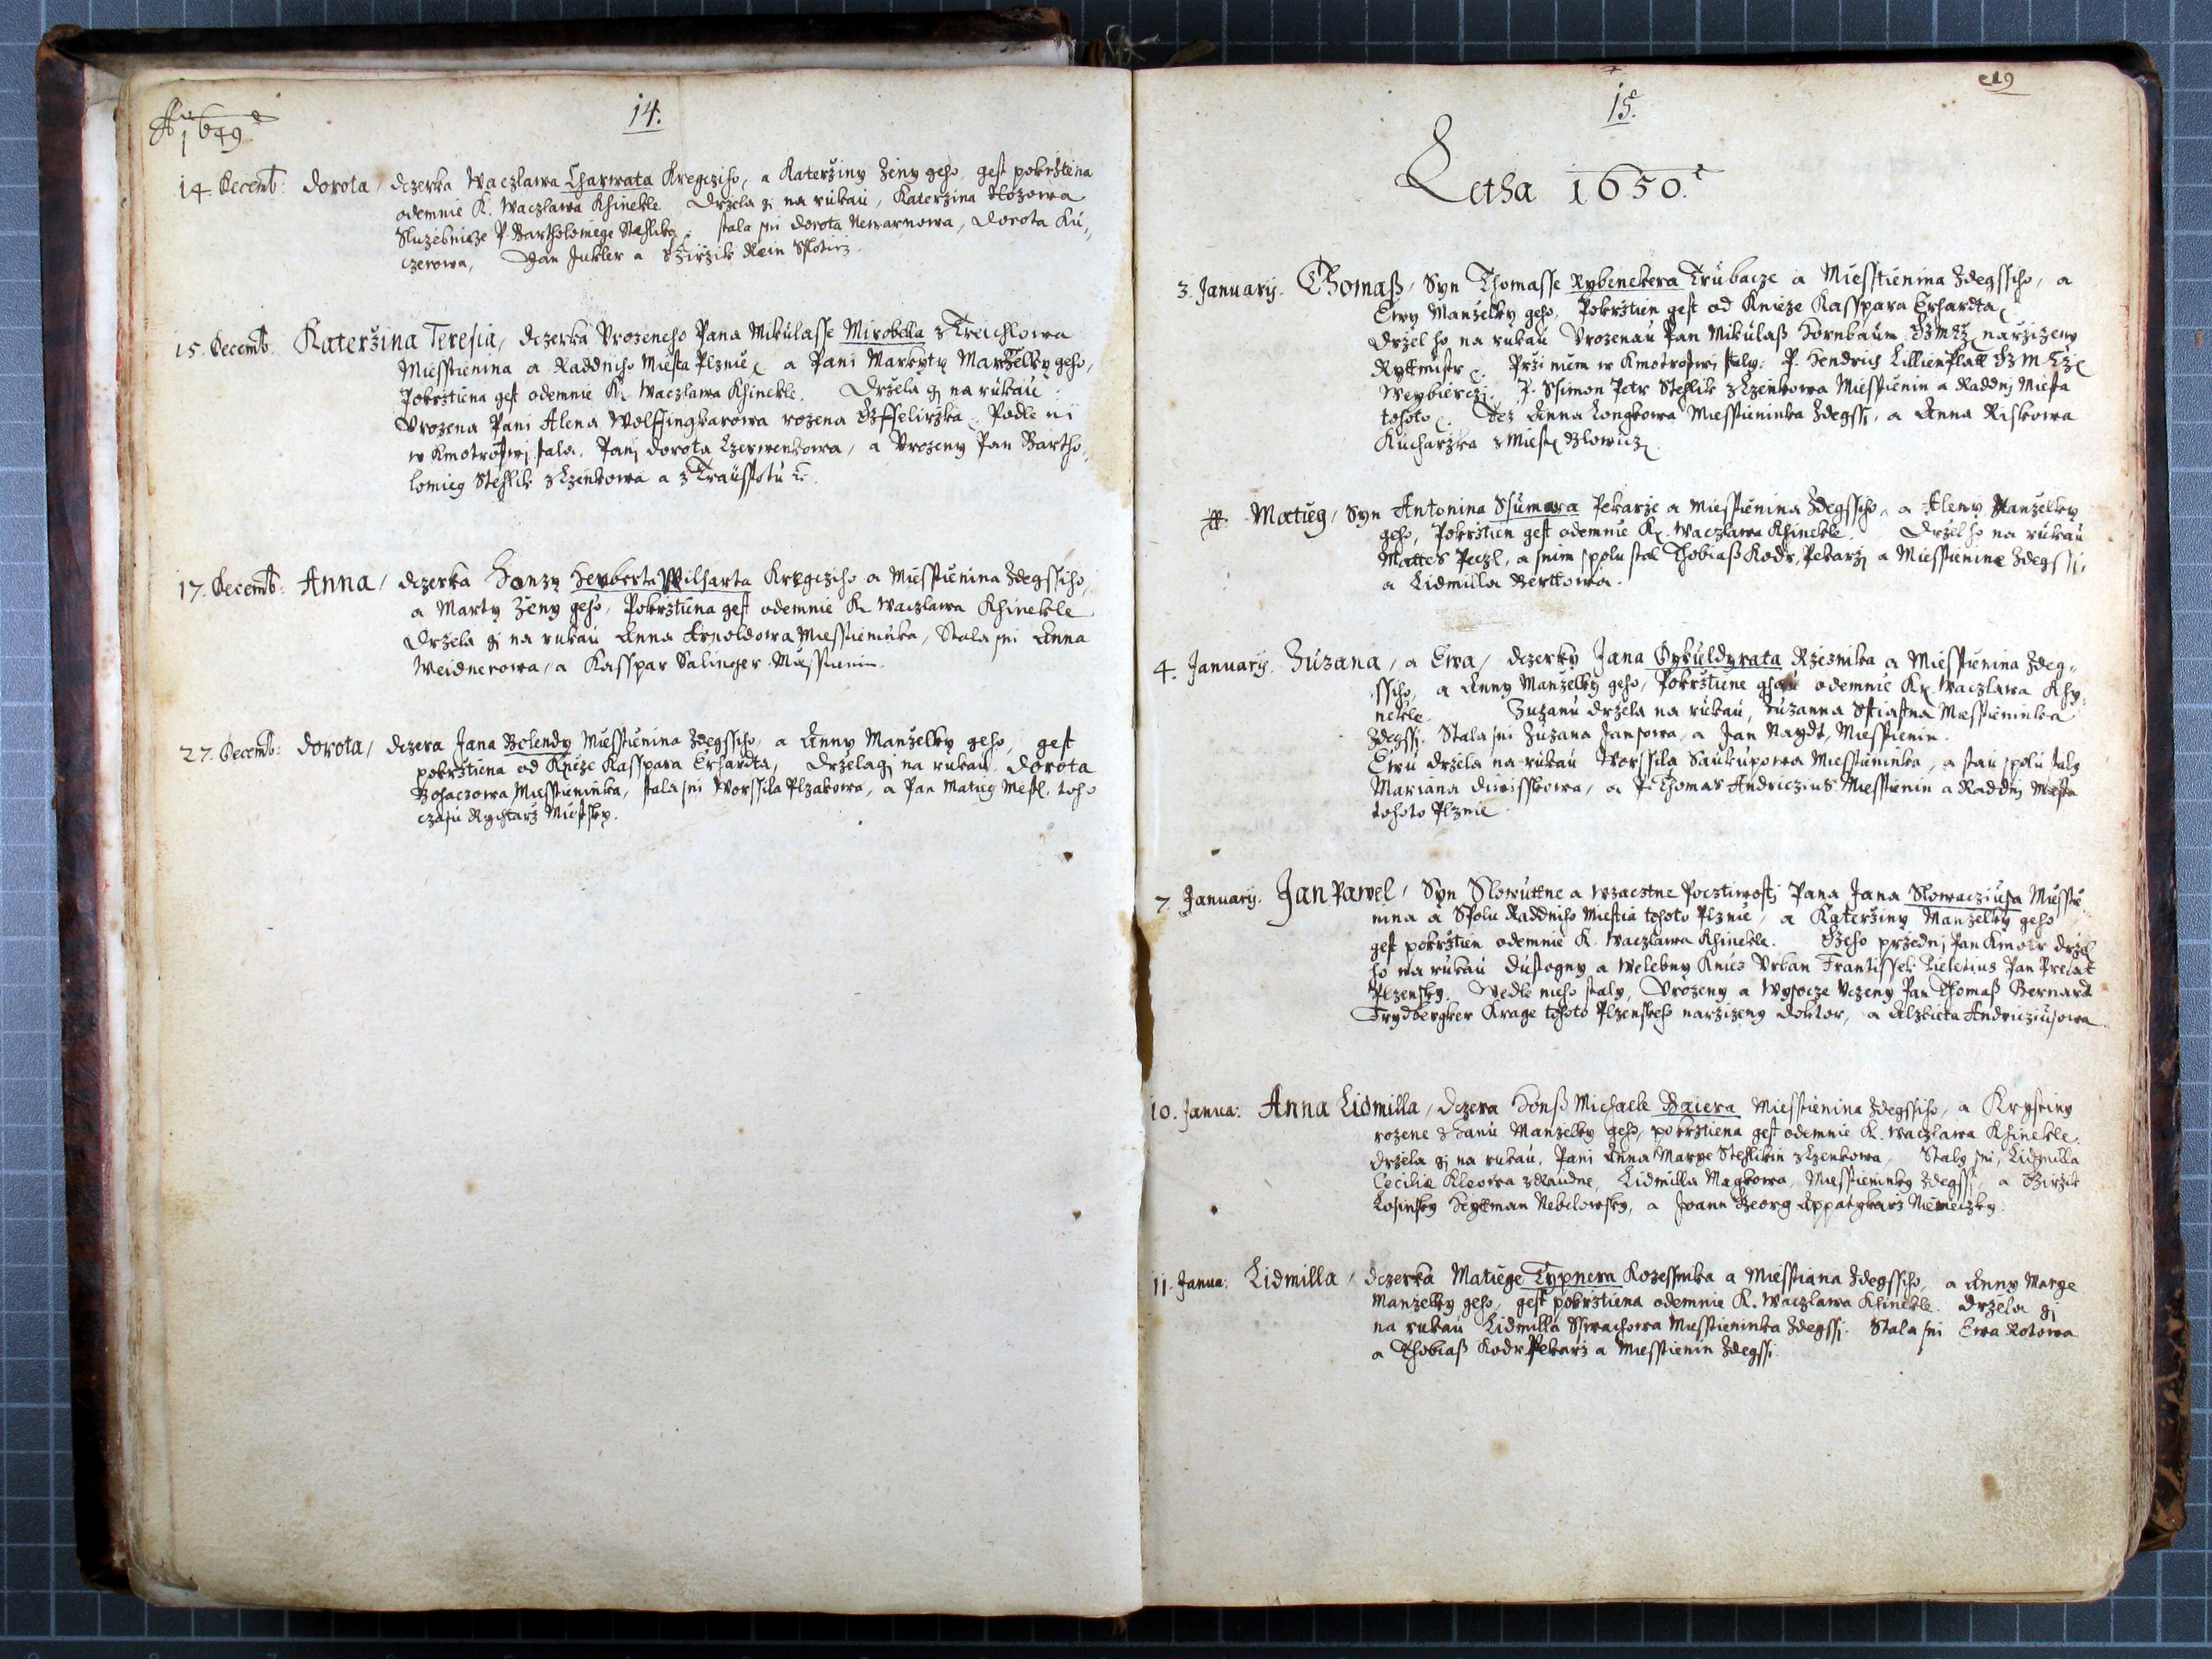 Aº 1649.
14.
14. Decemb: Dorota, dczerka Waczlawa Charwata Kregcziho, a Katerziny Zeny geho, gest pokrztiena
odemnie K. Waczlawa Khinekle. Drzela gi na rukau, Katerzina
Sluzebnicze P. Bartholomiege Stehlika: stala sni Dorota Newarnowa, Dorota Ku,,
czerowa, Jan Jukler a Girzik
15. Decemb. Katerzina Teresia, dczerka Urozeneho Pana Mikulasse Mirobella z Treichlowa
Miesstienina a Raddniho Miesta Plznie, a Pani Markyty Manzelky geho,
Pokrztiena gest odemnie K. Waczlawa Khinekle. Drzela gi na rukau:
Urozena Pani Alena Wolffingkarowa rozena Podle ni
w Kmotrostwi stala. Pani Dorota Czerwenkowa, a Urozeny Pan Bartho,,
lomieg Stehlik z Czenkowa a z
17. Decemb: Anna, dczerka Hanzy Herberta Wilharta Kregcziho a Miesstienina Zdegssiho,
a Marty Zeny geho, Pokrztiena gest odemnie K. Waczlawa Khinekle
Drzela gi na rukau Anna Arnoldowa Miesstieninka, Stala sni Anna
Weidnerowa, a Kasspar Salinger Miesstienin.
27. Decemb: Dorota, dczera Jana Bolendy Miesstienina Zdegssiho, a Anny Manzelky geho, gest
pokrztiena od Knieze Kasspara Erhardta, Drzela gi na rukau Dorota
Bohaczowa Miesstieninka, stala sni Worssila Plzakowa, a Pan Matieg toho
czasu Rychtarz Miestsky.
19
15.
Letha 1650.
3. Januarij. Thomaß, Syn Thomasse Rybenekera Trubacze a Miesstienina Zdegssiho, a
Ewy Manzelky geho, Pokrztien gest od Knieze Kasspara Erhardta
Drzel ho na rukau Urozenau Pan Mikulaß Hornbaum narzizeny
Rytmistr. Przi niem w Kmotrostwi staly: P. Hendrich Lillienblatt
Weybierczi. P. Ssimon Petr Stehlik z Czenkowa Miesstienin a Raddni Miesta
tohoto. Tez Anna Longkowa Miesstieninka Zdegssi, a Anna Riskowa
Kucharzka z Miest
Matieg, Syn Antonina Ssumawa Pekarze a Miesstienina Zdegssiho, a Aleny Manzelky
geho, Pokrztien gest odemnie K. Waczlawa Khinekle. Drzel ho na rukau
Mattes Peczl, a snim spolu stal Thobiaß Kodr, Pekarz a Miesstienin Zdegssi,
a Lidmilla Bertlowa.
4. Januarij. Zuzana, a Ewa, dczerky Jana Rzeznika a Miesstienina Zdeg,,
ssiho, a Anny Manzelky geho, Pokrztiene gsau odemnie K. Waczlawa Khy,,
nekle. Zuzanu drzela na rukau, Zuzanna Sstiastna Miesstieninka
Zdegssi. Stala sni Zuzana Jansowa, a Jan Naydl, Miesstienin.
Ewu drzela na rukau Worssila Saukupowa Miesstieninka, a stau spolu staly
Mariana Diwisskowa, a P. Thomas Andriczius Miesstienin a Raddni Miesta
tohoto Plznie.
7. Januarij. Jan Pawel, Syn Slowutne a Wzactne Pocztiwosti Pana Jana Slowacziusa Miesstie
nina a Spolu Raddniho Miesta tohoto Plznie, a Katerziny Manzelky geho
gest pokrztien odemnie K. Waczlawa Khinekle. Geho przedni Pan Kmotr drzel
ho na rukau Dustogny a Welebny Kniez Urban Frantissek Pan Prelat
Plzensky. Wedle nieho staly, Urozeny a Wysocze Uczeny Pan Thomaß Bernart
Frydbergker Krage tohoto Plzenskeho narzizeny Doktor, a Alzbieta Andricziusowa
10. Janua: Anna Lidmilla, dczera Hanß Michaele Baiera Miesstienina Zdegssiho, a Krystiny
rozene z Hanu Manzelky geho, pokrztiena gest odemnie K. Waczlawa Khinekle.
Drzela gi na rukau, Pani Anna Marye Stehlikin z Czenkowa. Staly sni, Lidmilla
Cecilia Kleowa z Raudne, Lidmilla Maykowa, Miesstieninky Zdegssi, a Girzik
Losinsky Heytman Nebilowsky, a Joann Georg Appatykarz Niemeczky.
11. Janua: Lidmilla, dczerka Matiege Typnera Kozessnika a Miesstiana Zdegssiho, a Anny Marye
Manzelky geho, gest pokrztiena odemnie K. Waczlawa Khinekle. Drzela gi
na rukau Lidmilla Sswachowa Miesstieninka Zdegssi. Stala sni Ewa Rotowa
a Thobiaß Kodr Pekarz a Miesstienin Zdegssi.